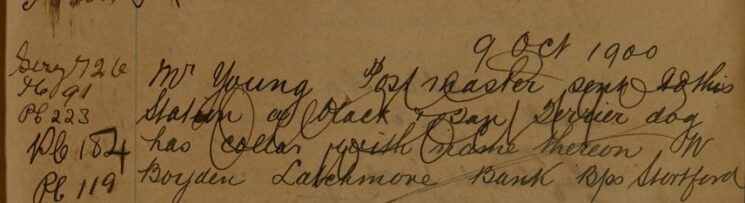 9 Oct 1900
Mr Young Postmaster sent to this
Station a black & tan Terrier dog
PC 223
has collar with name thereon W
PC 184
Boyden Latchmore Bank Bps Stortford
PC 119